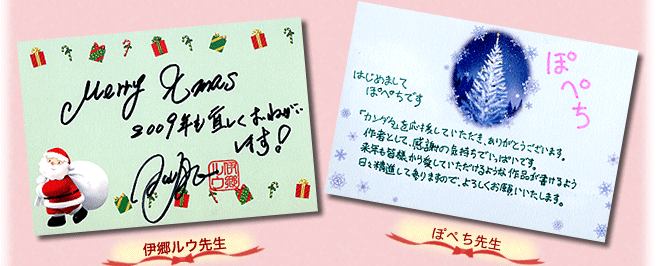 Merry Xmas
2009年も宜しくおねがい
します!
伊郷
ルウ
伊郷ルウ先生
ぽぺち
はじめまして
ぽぺちです
「カンダタ」を応援していただき、ありがとうございます。
作者として、感謝の気持ちでいっぱいです。
来年も皆様から愛していただけるような作品が書けるよう
日々精進して参りますので、よろしくお願いいたします。
ぽぺち先生